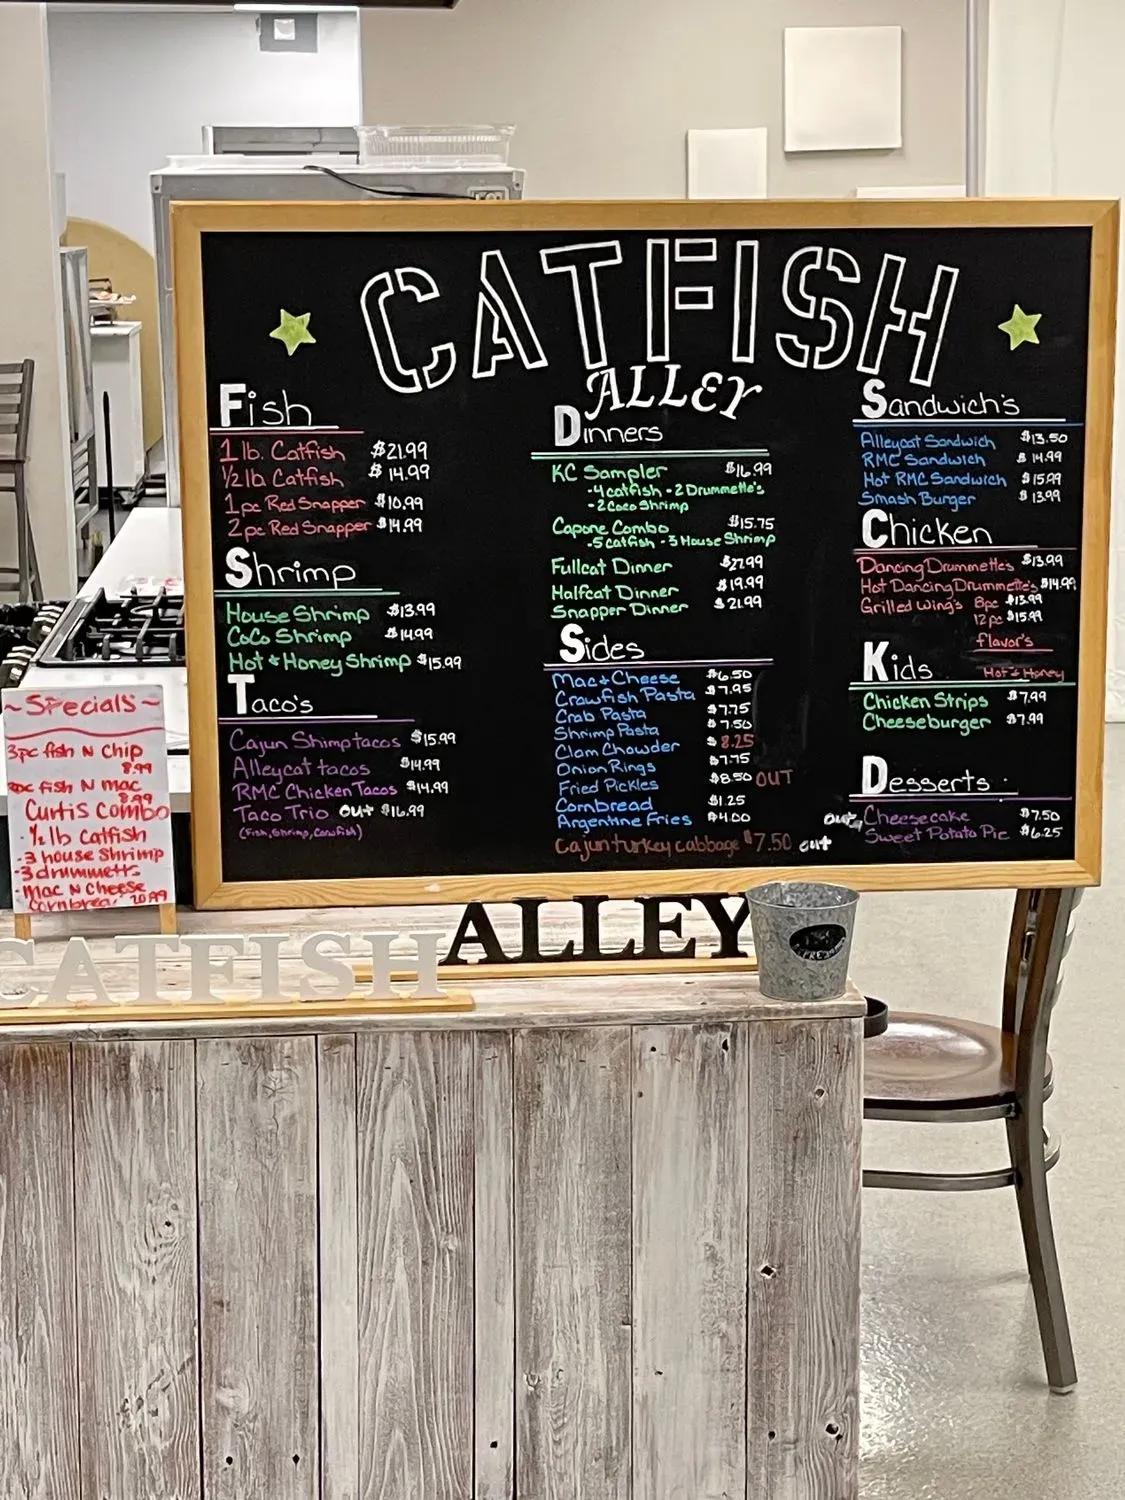 CATFISH
ALLEY
Fish
1 lb. Catfish $21.99
1/2 lb Catfish $14.99
1pc Red Snapper $10.99
2pc Red Snapper $14.99
Shrimp
House Shrimp $13.99
CoCo Shrimp $14.99
Hot & Honey Shrimp $15.99
Taco's
Cajun Shimp tacos $15.99
Alleycat tacos $14.99
RMC Chicken Tacos $14.99
Taco Trio out $16.99
(Fish, Shrimp, Crawfish)
Dinners
KC Sampler $16.99
-4 catfish -2 Drummette's
-2 Coco Shrimp
Capone Combo $15.75
-5 catfish -3 House Shrimp
Fullcat Dinner $27.99
Halfcat Dinner $19.99
Snapper Dinner $21.99
Sides
Mac & Cheese $6.50
Crawfish Pasta $7.95
Crab Pasta $7.75
Shrimp Pasta $7.50
Clam Chowder $8.25
Onion Rings $7.75
Fried Pickles $8.50 OUT
Cornbread $1.25
Argentine Fries $4.00
Cajun turkey cabbage $7.50 out
Sandwich's
Alleycat Sandwich $13.50
RMC Sandwich $14.99
Hot RMC Sandwich $15.99
Smash Burger $13.99
Chicken
Dancing Drummettes $13.99
Hot Dancing Drummette's $14.99
Grilled Wing's 8pc $13.99
12pc $15.99
flavor's
Hot & Honey
Kids
Chicken Strips $7.99
Cheeseburger $7.99
Desserts
out Cheesecake $7.50
Sweet Potato Pie $6.25
~Specials~
3pc fish N chip
8.99
pc fish N mac
8.99
Curtis Combo
- 1/2 lb Catfish
- 3 house shrimp
- 3 drummetts
- Mac N Cheese
Cornbread 20.99
CATFISH
ALLEY